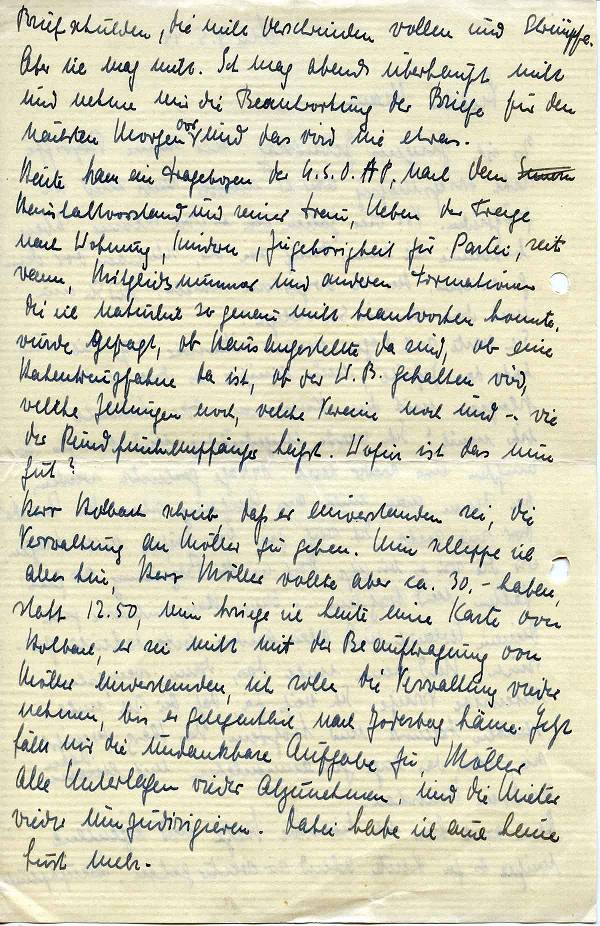 Briefschulden, die nicht verschwinden wollen und Strümpfe.
Aber ich mag nicht. Ich mag abends überhaupt nicht
und nehme mir die Beantwortung der Briefe für den
nächsten Morgen vor und das wird nie etwas.
Heute kam ein Fragebogen der N.S.D.AP. nach dem
Haushaltvorstand und seiner Frau, Neben der Frage
nach Wohnung, Kindern, Zugehörigkeit zur Partei, seit
wann, Mitgliedsnummer und anderen Formationen
die ich natürlich so genau nicht beantworten konnte,
wurde gefragt, ob Hausangestellte da sind, ob eine
Hakenkreuzfahne da ist, ob der V.B. gehalten wird,
welche Zeitungen noch, welche Vereine noch und - wie
der Rundfunkempfänger heisst. Wofür ist das nun
gut?
Herr Kolbach schrieb, daß er einverstanden sei, die
Verwaltung an Möller zu geben. Nun schleppe ich
alles hin, Herr Möller wollte aber ca. 30.- haben,
statt 12.50, nun kriege ich heute eine Karte von
Kolbach, er sei nicht mit der Beauftragung von
Möller einverstanden, ich solle die Verwaltung wieder
nehmen, bis er gelegentlich nach käme. Jetzt
fällt mir die undankbare Aufgabe zu, Möller
alle Unterlagen wieder abzunehmen, und die Mieter
wieder umzudirigieren. Dabei habe ich auch keine
Lust mehr.